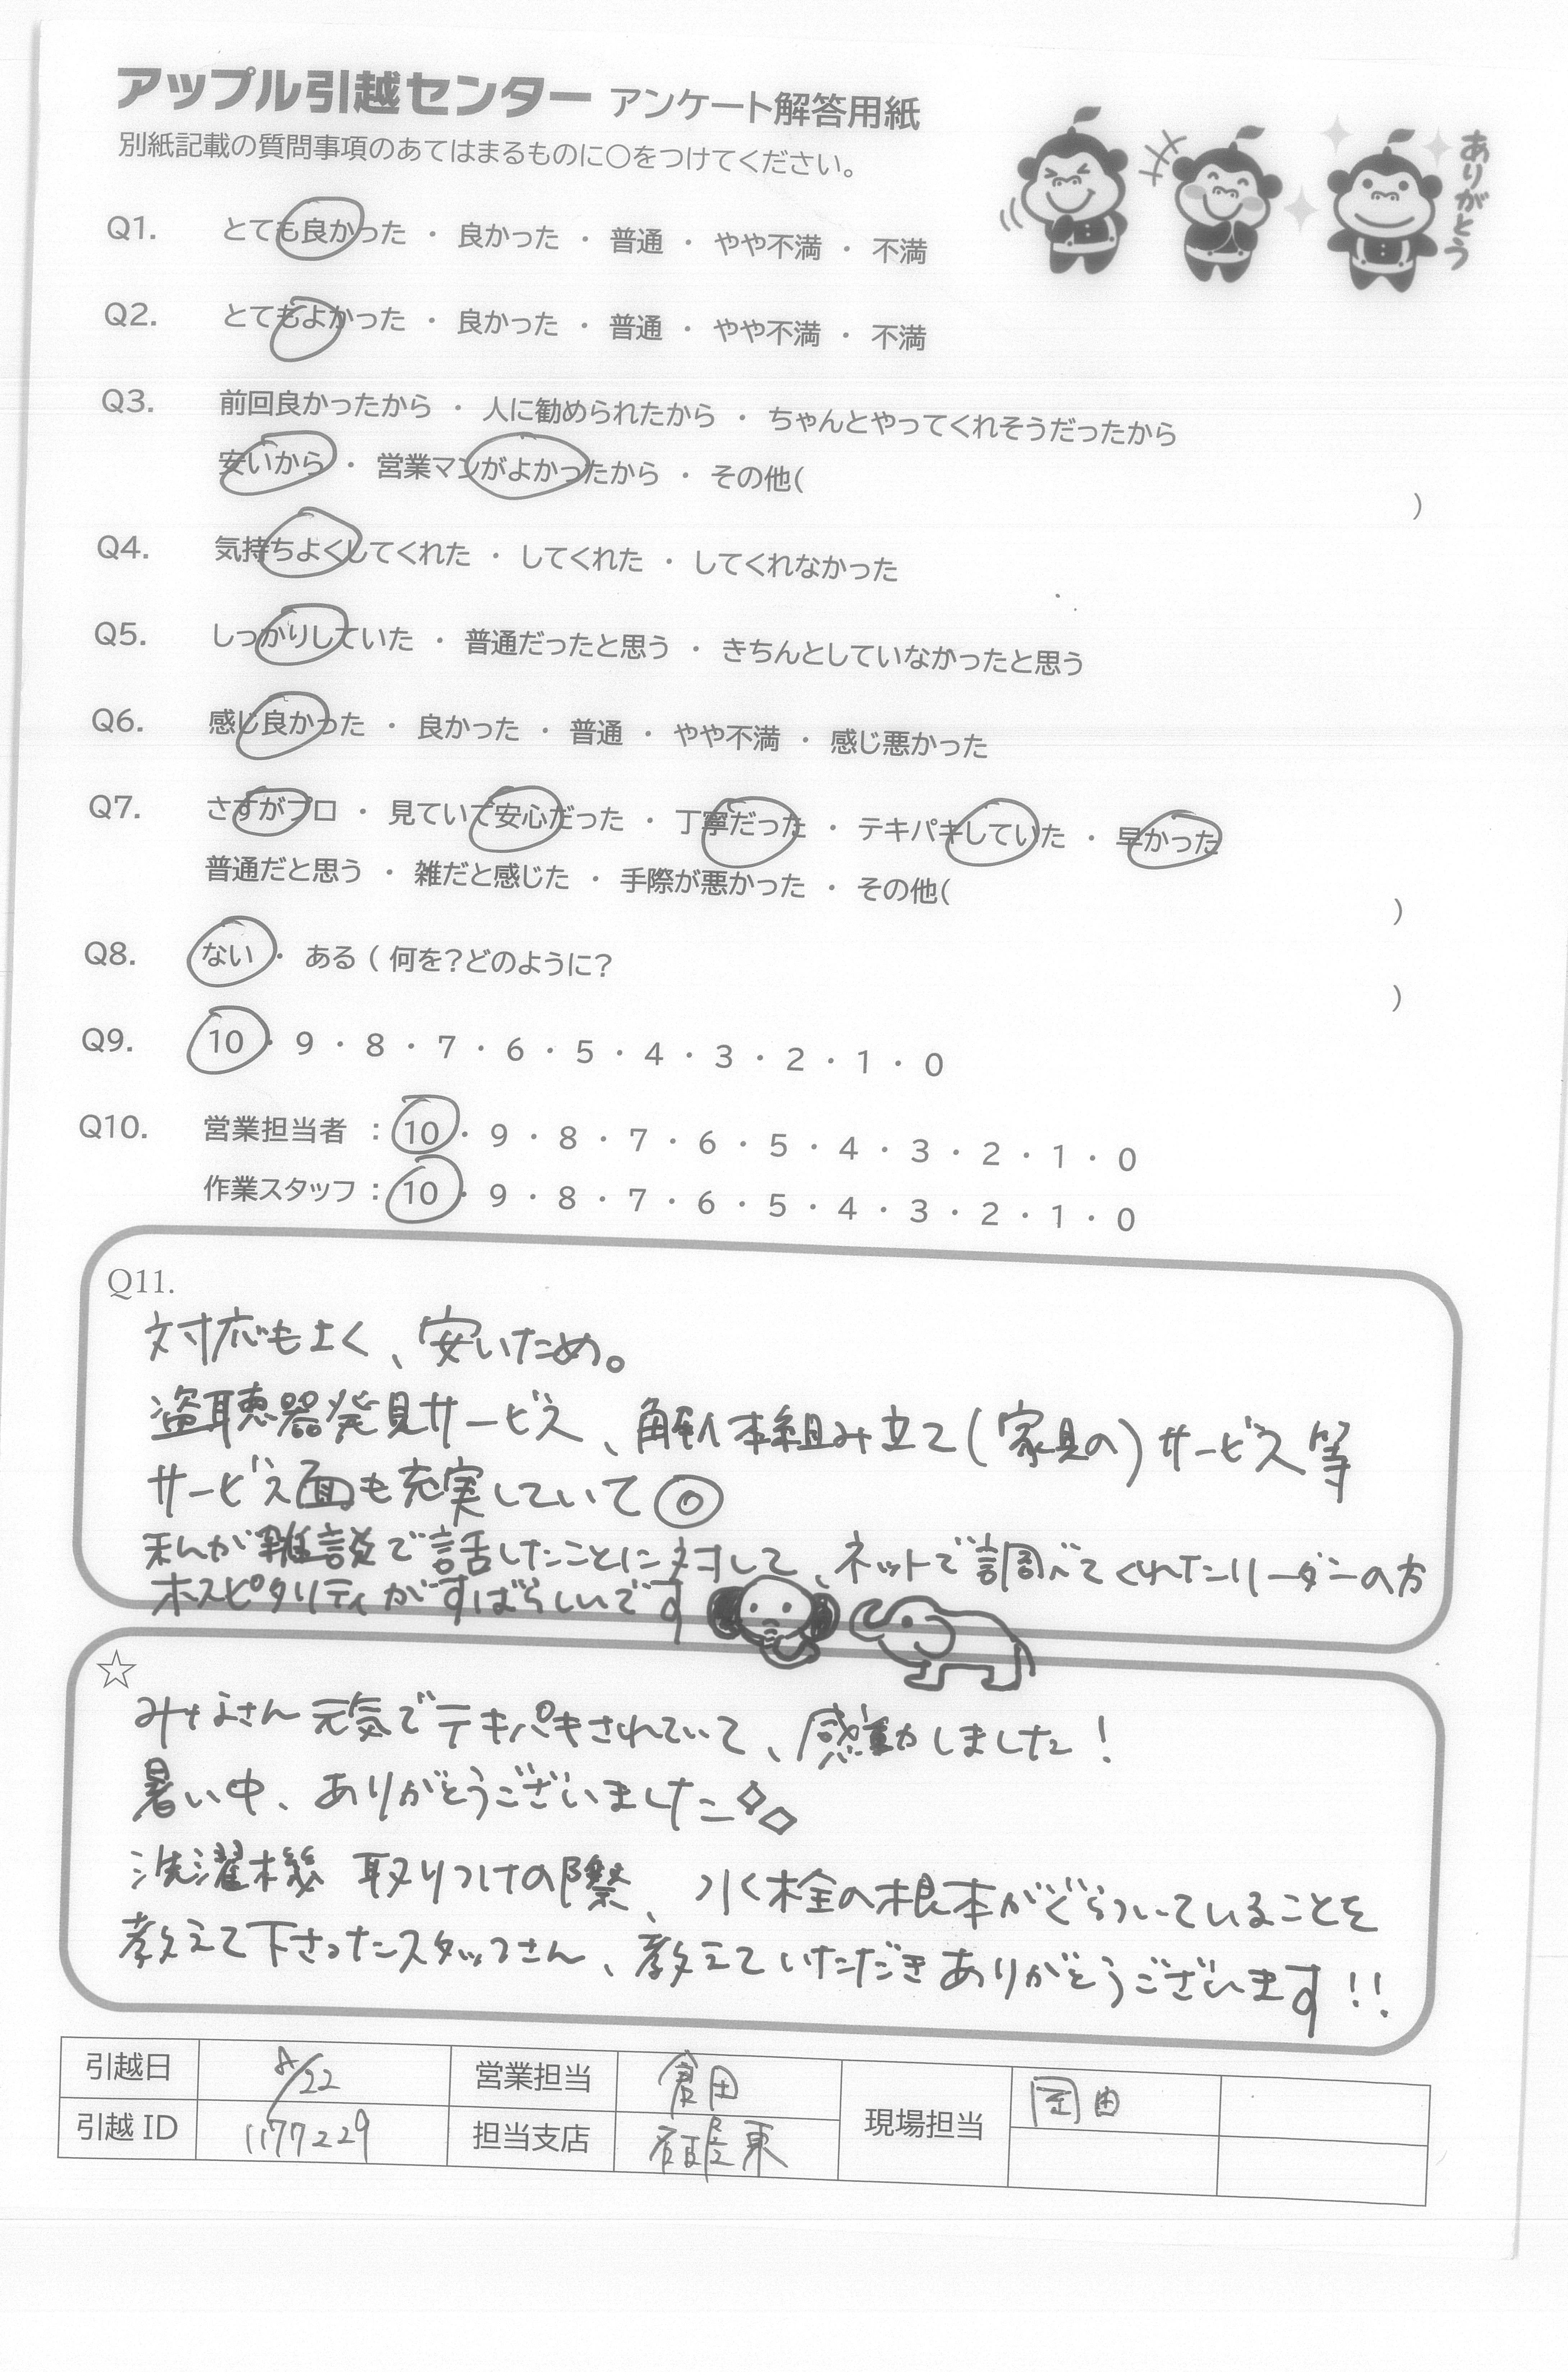 アップル引越センター アンケート解答用紙
別紙記載の質問事項のあてはまるものに〇をつけてください。
ありがとう
Q1. とても良かった ・ 良かった ・ 普通 ・ やや不満 ・ 不満
Q2. とてもよかった ・ 良かった ・ 普通 ・ やや不満 ・ 不満
Q3. 前回良かったから ・ 人に勧められたから ・ ちゃんとやってくれそうだったから
安いから ・ 営業マンがよかったから ・ その他( )
Q4. 気持ちよくしてくれた ・ してくれた ・ してくれなかった
Q5. しっかりしていた ・ 普通だったと思う ・ きちんとしていなかったと思う
Q6. 感じ良かった ・ 良かった ・ 普通 ・ やや不満 ・ 感じ悪かった
Q7. さすがプロ ・ 見ていて安心だった ・ 丁寧だった ・ テキパキしていた ・ 早かった
普通だと思う ・ 雑だと感じた ・ 手際が悪かった ・ その他( )
Q8. ない ・ ある ( 何を?どのように? )
Q9. 10 ・ 9 ・ 8 ・ 7 ・ 6 ・ 5 ・ 4 ・ 3 ・ 2 ・ 1 ・ 0
Q10. 営業担当者 : 10 ・ 9 ・ 8 ・ 7 ・ 6 ・ 5 ・ 4 ・ 3 ・ 2 ・ 1 ・ 0
作業スタッフ : 10 ・ 9 ・ 8 ・ 7 ・ 6 ・ 5 ・ 4 ・ 3 ・ 2 ・ 1 ・ 0
Q11.
対応もよく、安いため。
盗聴器発見サービス、解体組み立て(家具の)サービス等
サービス面も充実していて◎
私が雑談で話したことに対して、ネットで調べてくれたリーダーの方
ホスピタリティがすばらしいです
☆
みなさん元気でテキパキされていて、感動しました!
暑い中、ありがとうございました
洗濯機 取りつけの際、水栓の根本がぐらついていることを
教えて下さったスタッフさん、教えていただきありがとうございます!!
引越日 8/22 営業担当 倉田 現場担当 岡田
引越 ID 1177229 担当支店 名古屋東